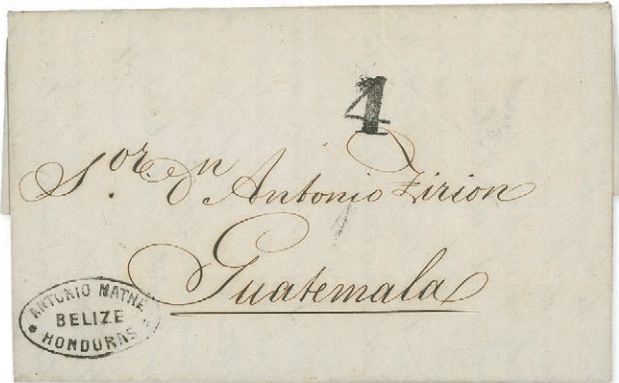 4
Sor. Dn Antonio Zirion
Guatemala
ANTONIO MATHE
BELIZE
HONDURAS